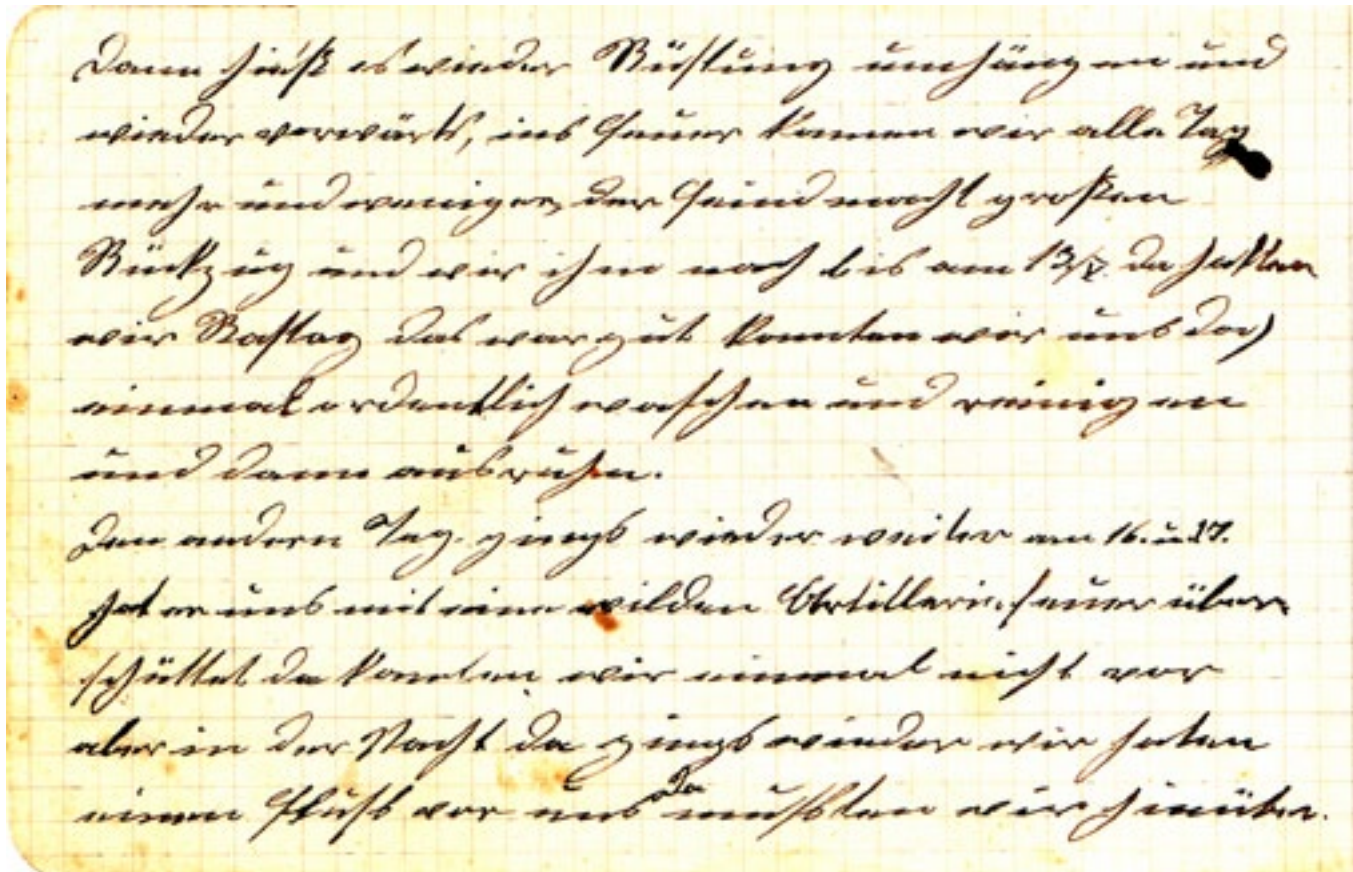 Dann hieß es wieder Rüstung umhängen und
wieder vorwärts, ins Feuer kamen wir alle Tag
mehr und weniger, der Feind macht großen
Rückzug und wir ihm nach bis am 13/V. da hatten
wir Rasttag das war gut konnten wir uns doch
einmal ordentlich waschen und reinigen
und dann ausruhn.
Den andern Tag gings wieder weiter am 16. u 17.
hat er uns mit eine wilden Artillerie feuer über
schüttet da konnten wir einmal nicht vor
aber in der Nacht da gings wieder wir haten
einen Fluß vor uns da mußten wir hinüber.